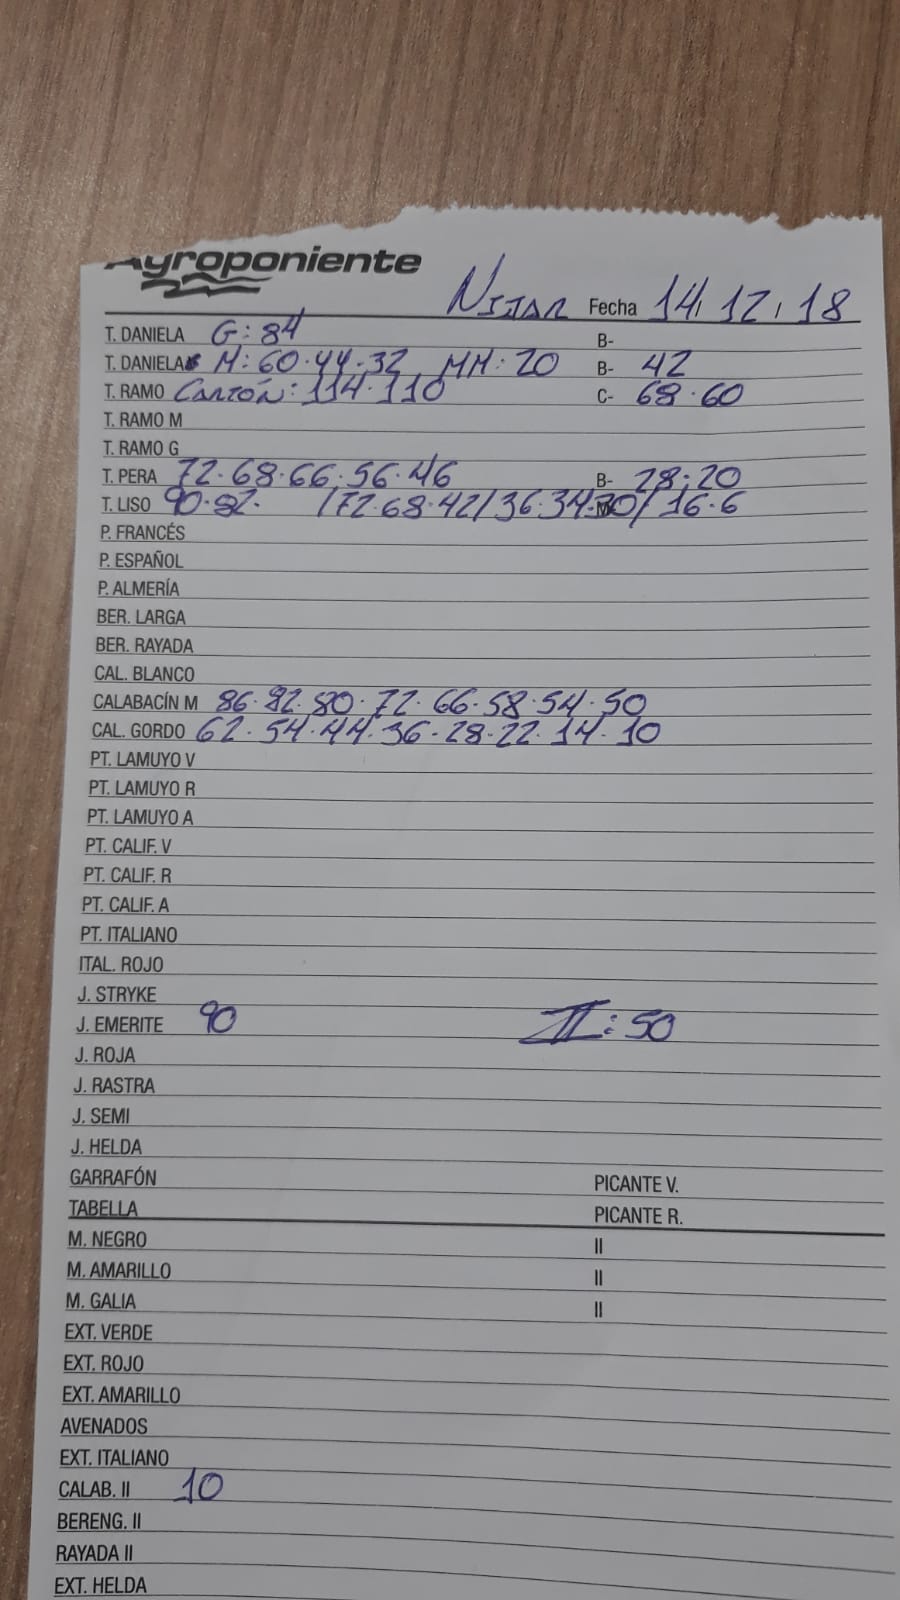 Agroponiente
NIJAR Fecha 14, 12, 18
T. DANIELA G: 84 B-
T. DANIELA M: 60.44.32 MM: 20 B- 42
T. RAMO CARTÓN: 114.110 C- 68.60
T. RAMO M
T. RAMO G
T. PERA 72.68.66.56.46 B- 28.20
T. LISO 90.82. /72.68.42/36.34.30/16.6
P. FRANCÉS
P. ESPAÑOL
P. ALMERÍA
BER. LARGA
BER. RAYADA
CAL. BLANCO
CALABACÍN M 86.82.80.72.66.58.54.50
CAL. GORDO 62.54.44.36.28.22.14.10
PT. LAMUYO V
PT. LAMUYO R
PT. LAMUYO A
PT. CALIF. V
PT. CALIF. R
PT. CALIF. A
PT. ITALIANO
ITAL. ROJO
J. STRYKE
J. EMERITE 90 II: 50
J. ROJA
J. RASTRA
J. SEMI
J. HELDA
GARRAFÓN PICANTE V.
TABELLA PICANTE R.
M. NEGRO II
M. AMARILLO II
M. GALIA II
EXT. VERDE
EXT. ROJO
EXT. AMARILLO
AVENADOS
EXT. ITALIANO
CALAB. II 10
BERENG. II
RAYADA II
EXT. HELDA